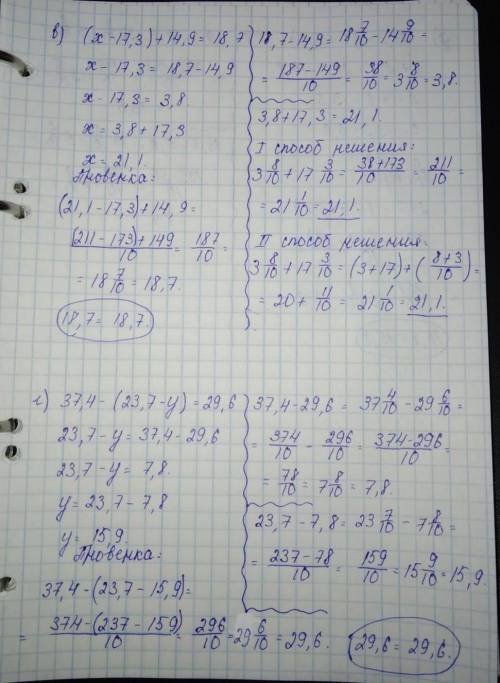 в) (x-17,3)+14,9=18,7
x-17,3=18,7-14,9
x-17,3=3,8.
x=3,8+17,3
x=21,1.
Проверка:
(21,1-17,3)+14,9=
(211-173)+149/10 = 187/10 =
= 18 7/10 = 18,7.
18,7=18,7.
18,7-14,9=18 7/10 - 14 9/10 =
= 187-149/10 = 38/10 = 3 8/10 = 3,8.
3,8+17,3=21,1.
I способ решения:
3 8/10 + 17 3/10 = 38+173/10 = 211/10 =
= 21 1/10 = 21,1.
II способ решения:
3 8/10 + 17 3/10 = (3+17)+(8+3/10)=
= 20+ 11/10 = 21 1/10 = 21,1.
г) 37,4-(23,7-y)=29,6
23,7-y=37,4-29,6
23,7-y=7,8.
y=23,7-7,8
y=15,9.
Проверка:
37,4-(23,7-15,9)=
= 374-(237-159)/10 = 296/10 = 29 6/10 = 29,6.
37,4-29,6=37 4/10 - 29 6/10 =
= 374/10 - 296/10 = 374-296/10 =
= 78/10 = 7 8/10 = 7,8.
23,7-7,8=23 7/10 - 7 8/10 =
= 237-78/10 = 159/10 = 15 9/10 = 15,9.
29,6=29,6.